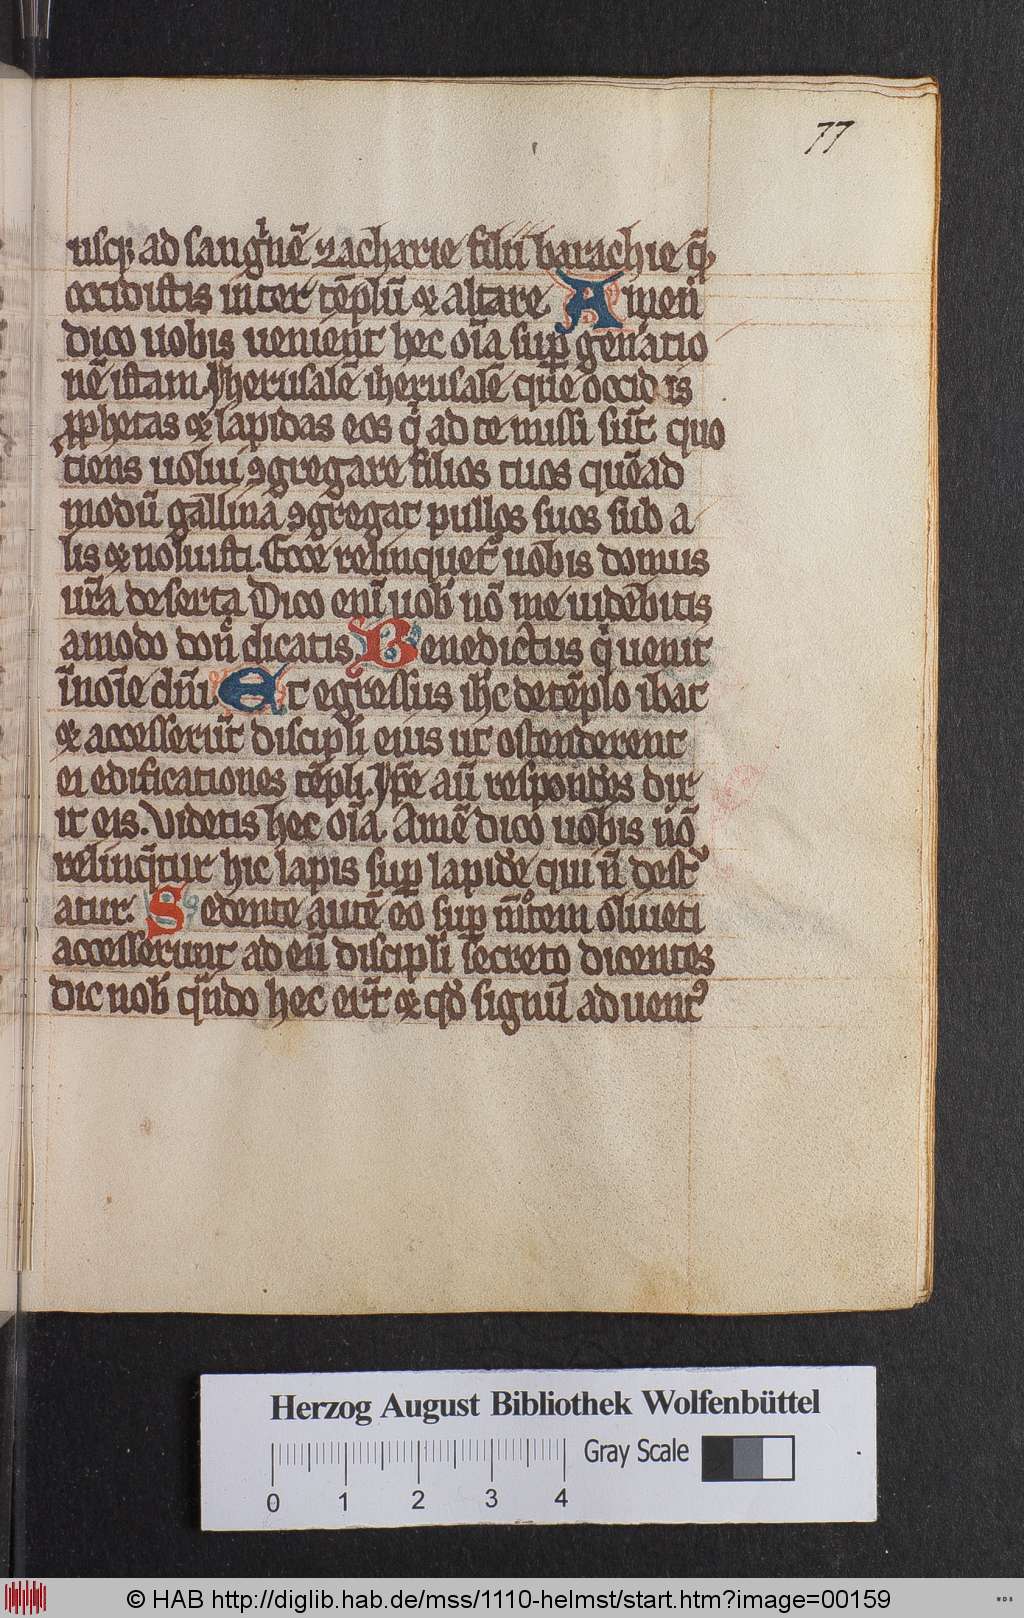 77
usq; ad sangͥnē zacharie filii barachie qͫ
occidistis inter tēplū ⁊ altare Amen
dico uobis uenient hec oīa sup gen̄atio
nē istam Jherusalē iherusalē que occidis
ꝓphetas ⁊ lapidas eos qͥ ad te missi sūt quo
tiens uolui ꝯgregare filios tuos quēad
modū gallina ꝯgregat pullos suos sub a
lis ⁊ noluisti. Ecce relinquet᷑ uobis domus
ur̄a deserta Dico enī uob̄ nō me uidebitis
amodo don̄ dicatis Benedictus qͥ uenit
ī noīe dn̄i Et egressus ih̄c de tēplo ibat
⁊ accesserūt discipli eius ut ostenderent
ei edificationes tēpli. Jp̄e aū respondēs dix
it eis. Videtis hec oīa. Amē dico uobis nō
relinqͥtur hic lapis sup lapidē qui n̄ destͬ
atur. Sedente autē eo sup mōtem oliueti
accesserunt ad eū discipli secreto dicentes
dic nob̄ qͣndo hec er̄t ⁊ qd̄ signū aduentꝰ
Herzog August Bibliothek Wolfenbüttel
Gray Scale
0 1 2 3 4
© HAB http://diglib.hab.de/mss/1110-helmst/start.htm?image=00159